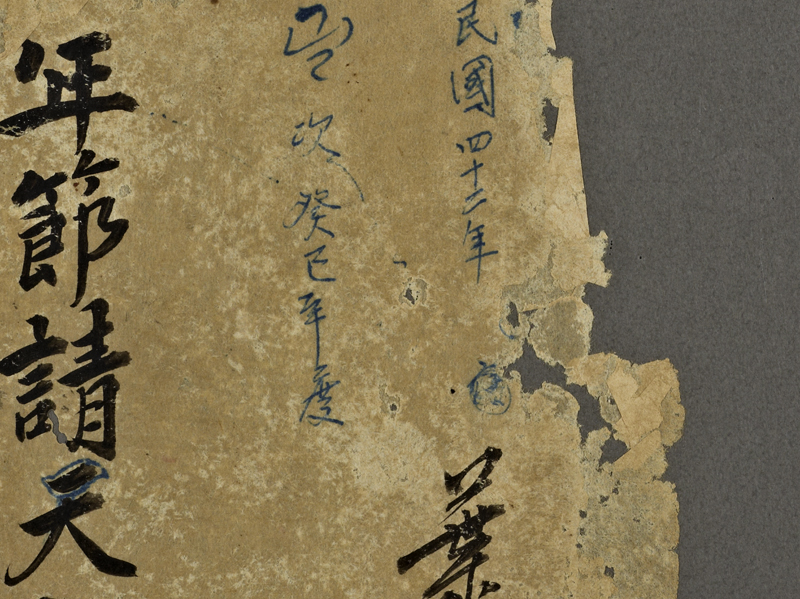 民國四十二年
葉
次癸巳年度
年節請天